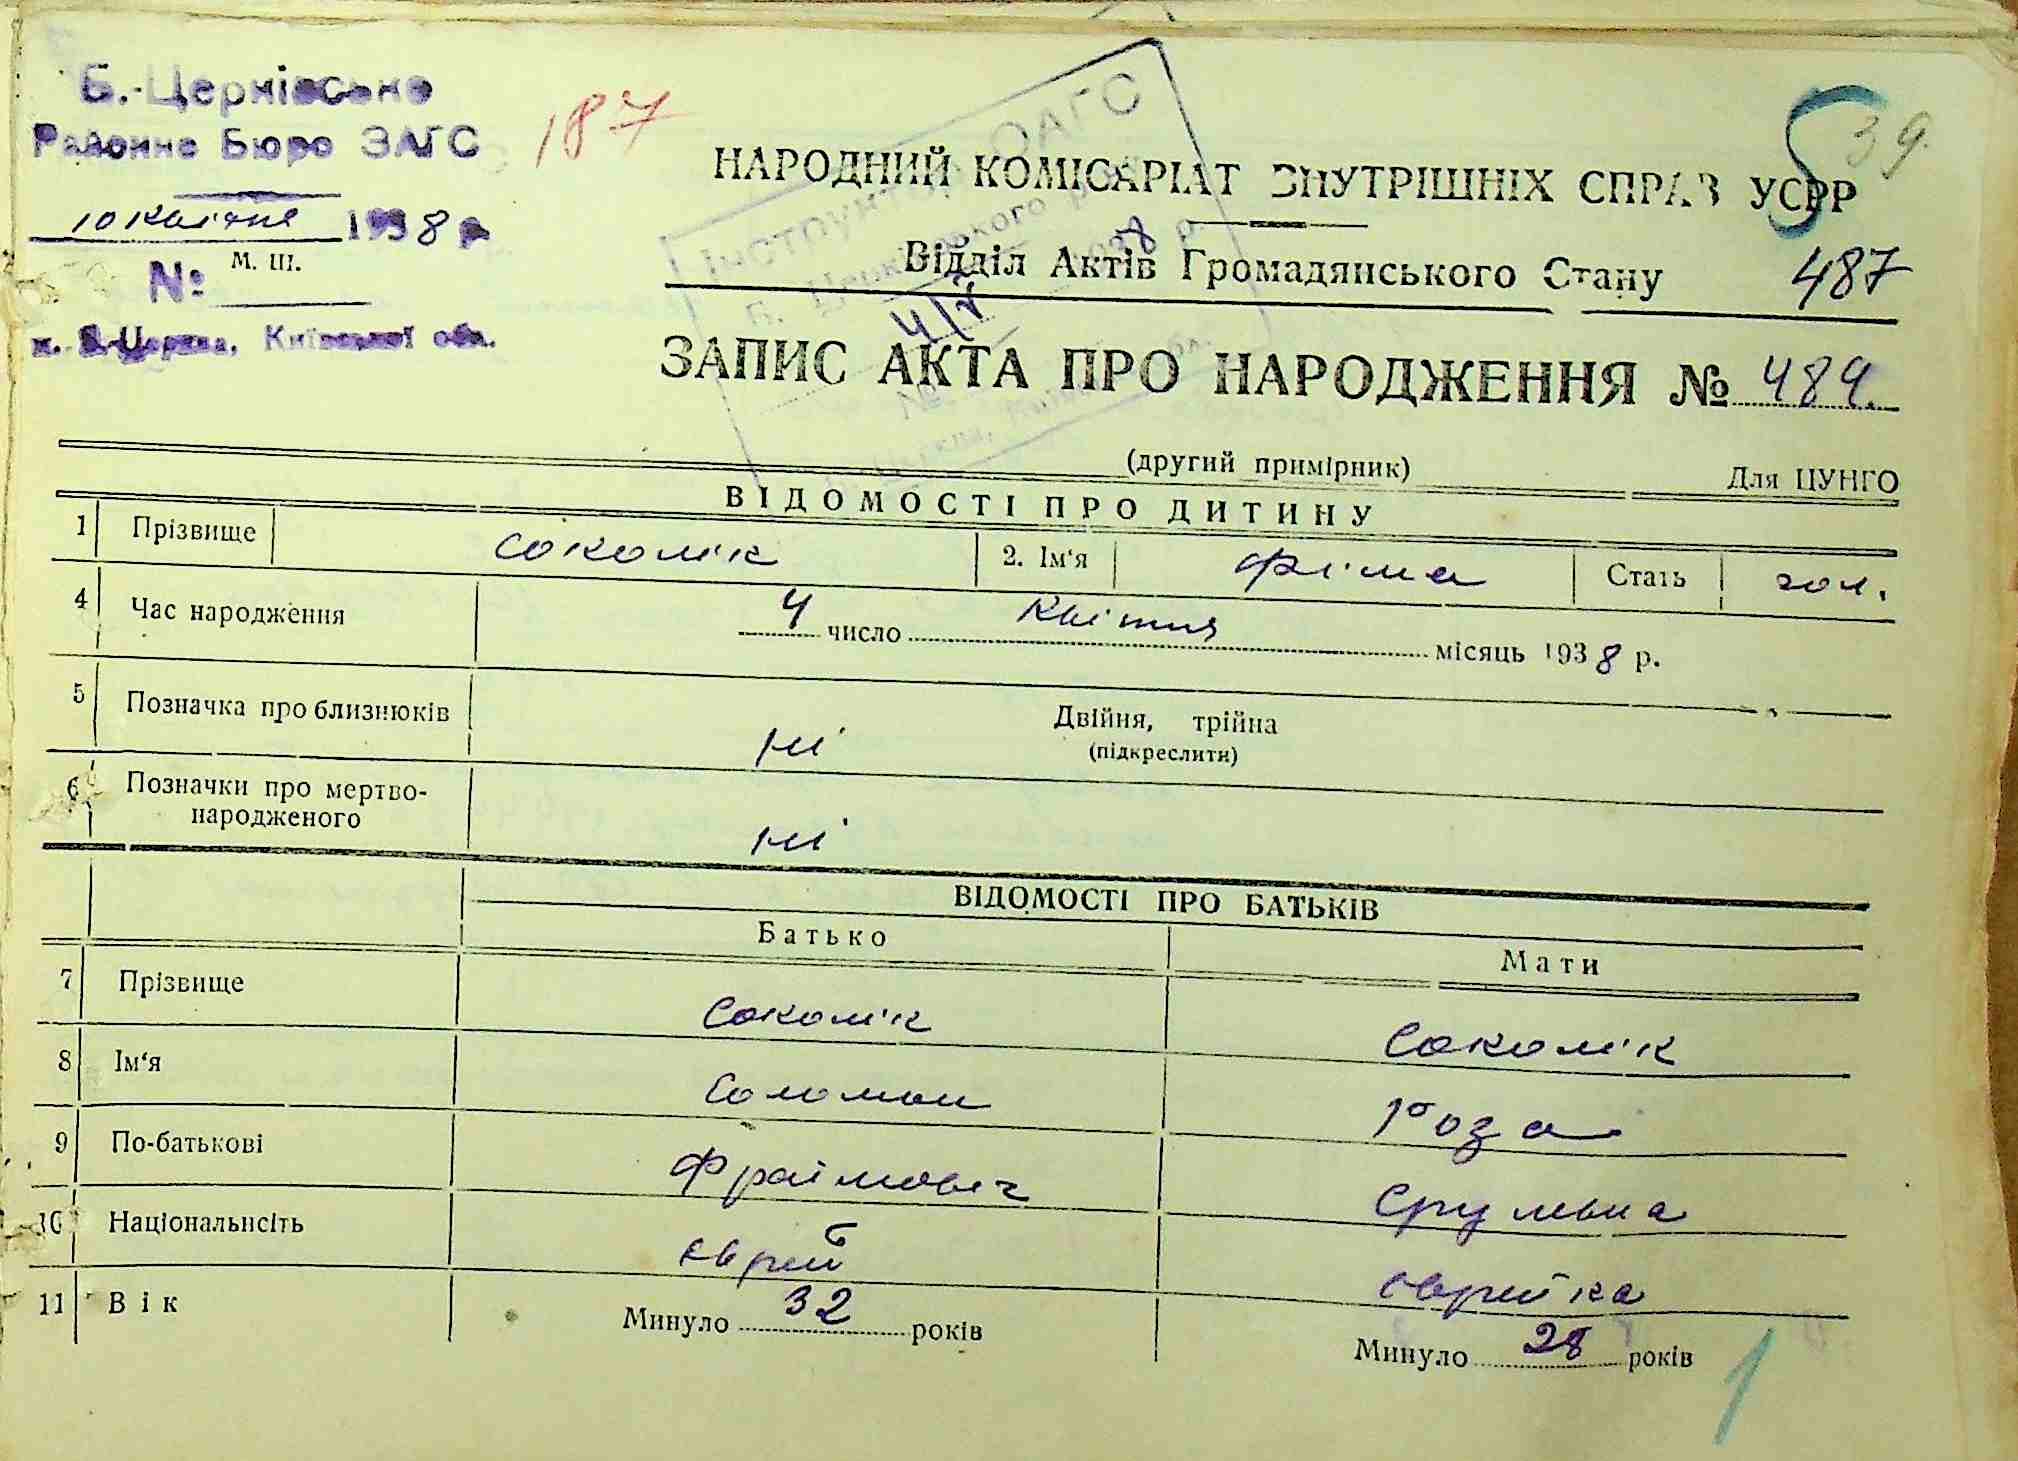 Б.-Церківське
Районне Бюро ЗАГС
187
10 квітня 1938 р
М. Ш.
№
м. Б.-Церква, Київської обл.
39
НАРОДНИЙ КОМІСАРІАТ ВНУТРІШНІХ СПРАВ УСРР
Відділ Актів Громадянського Стану
487
ЗАПИС АКТА ПРО НАРОДЖЕННЯ № 484
(другий примірник)
Для ЦУНГО
ВІДОМОСТІ ПРО ДИТИНУ
1 Прізвище Соколік 2. Ім'я Фіма Стать чол.
4 Час народження 4 число Квітня місяць 1938 р.
5 Позначка про близнюків ні Двійня, трійна
(підкреслити)
6 Позначки про мертво-
народженого ні
ВІДОМОСТІ ПРО БАТЬКІВ
Батько Мати
7 Прізвище Соколік Соколік
8 Ім'я Соломон Роза
9 По-батькові Фраімовіч Срулівна
10 Національність Єврей Єврейка
11 Вік Минуло 32 років Минуло 28 років
1